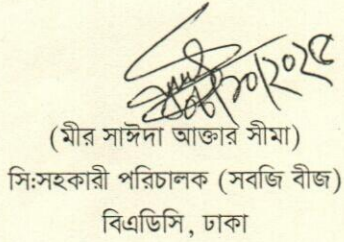 ০৮/১০/২০২৫
(মীর সাঈদা আক্তার সীমা)
সি:সহকারী পরিচালক (সবজি বীজ)
বিএডিসি, ঢাকা